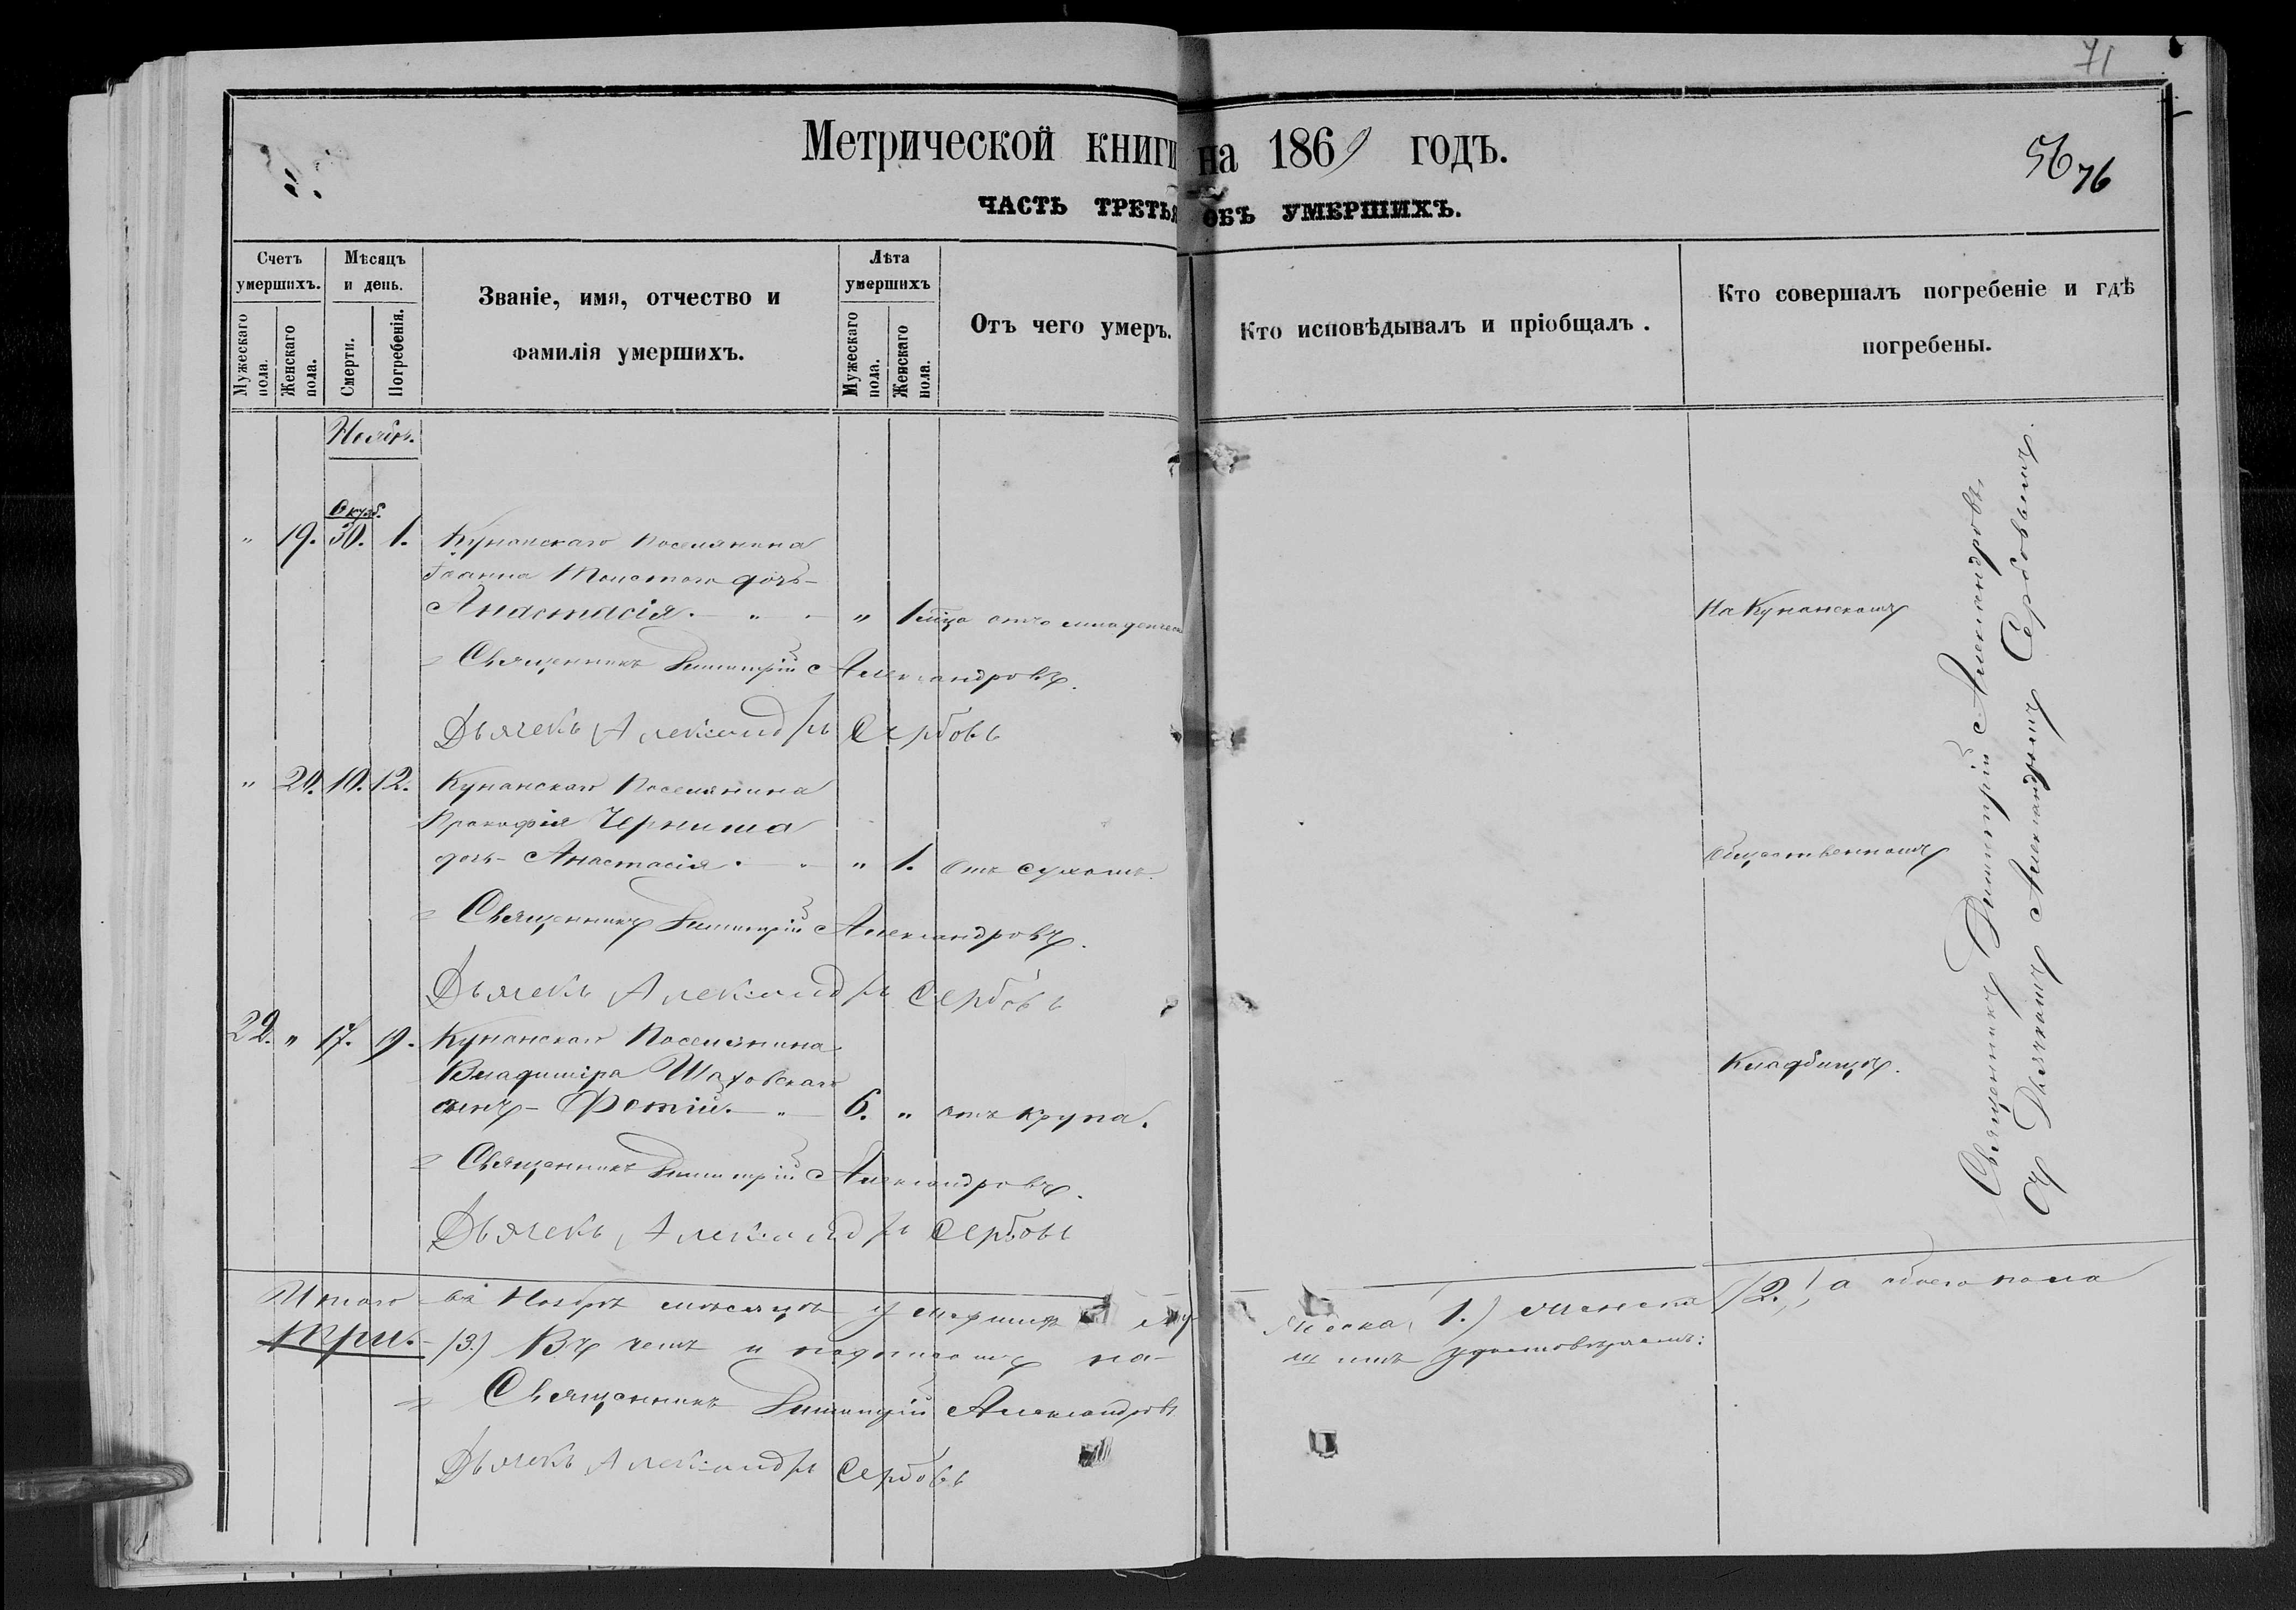 71
Метрической книги на 1869 годъ.
56 76
ЧАСТЬ ТРЕТЬЯ ОБЪ УМЕРШИХЪ.
Счетъ умершихъ.
Мужескаго пола.
Женскаго пола.
Мѣсяцъ и день.
Смерти.
Погребенія.
Званіе, имя, отчество и
фамилія умершихъ.
Лѣта умершихъ
Мужескаго пола.
Женскаго пола.
Отъ чего умеръ.
Кто исповѣдывалъ и пріобщалъ.
Кто совершалъ погребеніе и гдѣ
погребены.
Ноябрь.
Октяб.
" 19. 30. 1. Кунанскаго Поселянина
Іоанна Толстого дочь-
Анастасія. " " 1 мца отъ младенческ
Священникъ Димитрій Александровъ.
Дьячекъ Александръ Сербовъ
" 20. 10. 12. Кунанскаго Поселянина
Прокофія Черныша
дочь- Анастасія. " 1. отъ сухотъ.
Священникъ Димитрій Александровъ.
Дьячекъ Александръ Сербовъ
22. " 17. 19. Кунанскаго Поселянина
Владиміра Шаховскаго
сынъ- Фотій. " 6. " отъ крупа.
Священникъ Димитрій Александровъ.
Дьячекъ Александръ Сербовъ
На Кунанскомъ
общественномъ
Кладбищѣ.
Священникъ Димитрій Александровъ,
съ Дьячкомъ Александромъ Сербовымъ.
Итого въ Ноябрѣ мѣсяцѣ умершихъ му жеска, 1.) женска /2.,) а обоего пола
три. /3.) Въ чемъ и подписомъ на шимъ удостовѣряемъ:
Священникъ Димитрій Александровъ
Дьячекъ Александръ Сербовъ